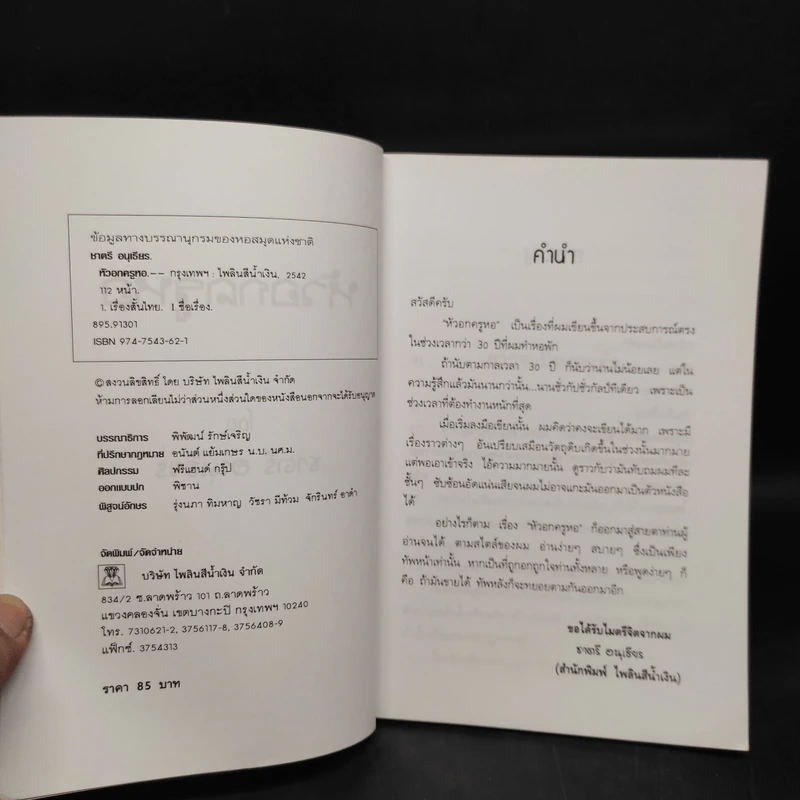 ข้อมูลทางบรรณานุกรมของหอสมุดแห่งชาติ
ชาตรี อนุเธียร.
หัวอกครูหอ.-- กรุงเทพฯ : ไพลินสีน้ำเงิน, 2542
112 หน้า.
1. เรื่องสั้นไทย. I.ชื่อเรื่อง.
895.91301
ISBN 974-7543-62-1
© สงวนลิขสิทธิ์ โดย บริษัท ไพลินสีน้ำเงิน จำกัด
ห้ามการลอกเลียนไม่ว่าส่วนหนึ่งส่วนใดของหนังสือนอกจากจะได้รับอนุญาต
บรรณาธิการ พิพัฒน์ รักษ์เจริญ
ที่ปรึกษากฎหมาย อนันต์ แย้มเกษร น.บ. นศ.ม.
ศิลปกรรม ฟรีแฮนด์ กรุ๊ป
ออกแบบปก พิชาน
พิสูจน์อักษร รุ่งนภา ทิมหาญ วัชรา มีท้วม จักรินทร์ อาดำ
จัดพิมพ์/จัดจำหน่าย
บริษัท ไพลินสีน้ำเงิน จำกัด
834/2 ซ.ลาดพร้าว 101 ถ.ลาดพร้าว
แขวงคลองจั่น เขตบางกะปิ กรุงเทพฯ 10240
โทร. 7310621-2, 3756117-8, 3756408-9
แฟ็กซ์. 3754313
ราคา 85 บาท
คำนำ
สวัสดีครับ
"หัวอกครูหอ" เป็นเรื่องที่ผมเขียนขึ้นจากประสบการณ์ตรง
ในช่วงเวลากว่า 30 ปีที่ผมทำหอพัก
ถ้านับตามกาลเวลา 30 ปี ก็นับว่านานไม่น้อยเลย แต่ใน
ความรู้สึกแล้วมันนานกว่านั้น...นานชั่วกัปชั่วกัลป์ทีเดียว เพราะเป็น
ช่วงเวลาที่ต้องทำงานหนักที่สุด
เมื่อเริ่มลงมือเขียนนั้น ผมคิดว่าคงจะเขียนได้มาก เพราะมี
เรื่องราวต่างๆ อันเปรียบเสมือนวัตถุดิบเกิดขึ้นในช่วงนั้นมากมาย
แต่พอเอาเข้าจริง ไอ้ความมากมายนั้น ดูราวกับว่ามันทับถมผมทีละ
ชั้นๆ ซับซ้อนอัดแน่นเสียจนผมไม่อาจแกะมันออกมาเป็นตัวหนังสือ
ได้
อย่างไรก็ตาม เรื่อง "หัวอกครูหอ" ก็ออกมาสู่สายตาท่านผู้
อ่านจนได้ ตามสไตล์ของผม อ่านง่ายๆ สบายๆ ซึ่งเป็นเพียง
ทัพหน้าเท่านั้น หากเป็นที่ถูกอกถูกใจท่านทั้งหลาย หรือพูดง่ายๆ ก็
คือ ถ้ามันขายได้ ทัพหลังก็จะทยอยตามกันออกมาอีก
ขอได้รับไมตรีจิตจากผม
ชาตรี อนุเธียร
(สำนักพิมพ์ ไพลินสีน้ำเงิน)